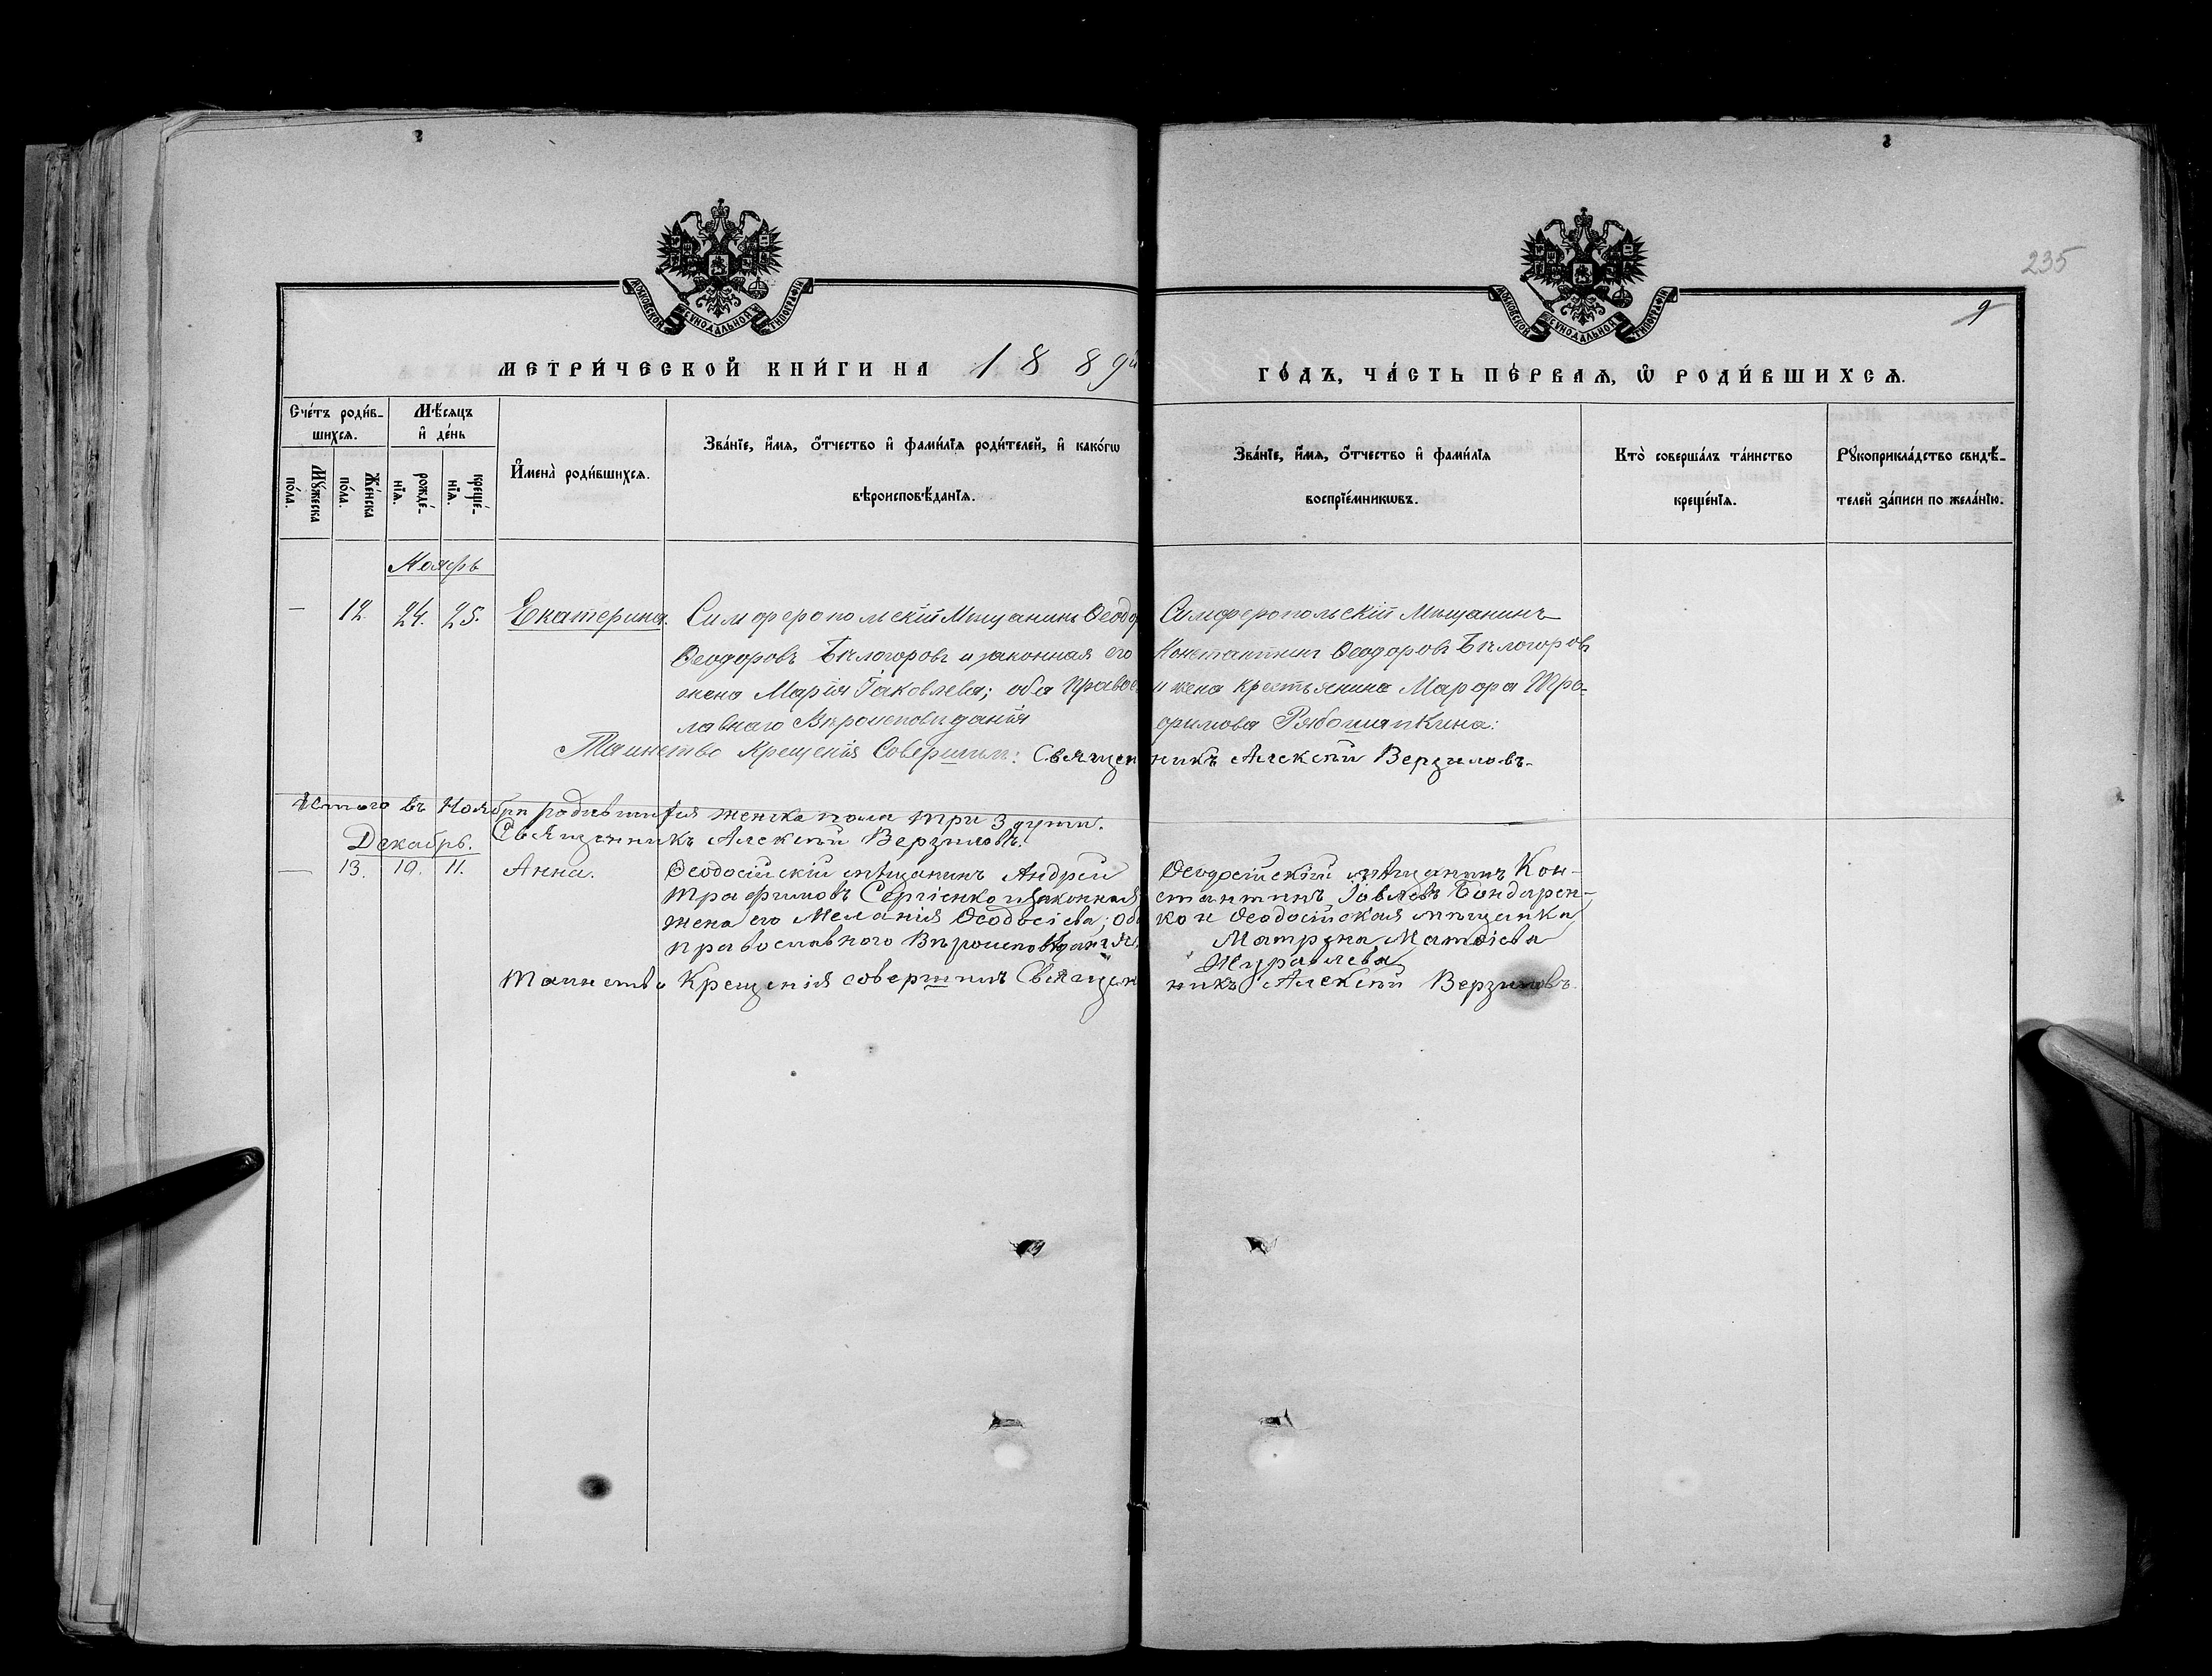 235
9
МОСКОВСКОЙ СѴНОДАЛЬНОЙ ТИПОГРАФІИ
МОСКОВСКОЙ СѴНОДАЛЬНОЙ ТИПОГРАФІИ
МЕТРИ́ЧЕСКОЙ КНИ́ГИ НА 1889й
ГО́ДЪ, ЧА́СТЬ ПЕ́РВАѦ, Ѽ РОДИ́ВШИХСѦ.
Счéтъ роди́в-
шихсѧ.
Мѣ́сѧцъ
и҆ де́нь
Мꙋ́жеска
по́ла.
Же́нска
по́ла.
рожде́-
нїѧ.
креще́-
нїѧ.
И҆мена̀ роди́вшихсѧ.
Зва́нїе, и҆́мѧ, о҆́тчество и҆ фами́лїѧ роди́телей, и҆ како́гѡ
вѣроисповѣ́данїѧ.
Зва́нїе, и҆́мѧ, о҆́тчество и҆ фами́лїѧ
воспрїе́мникѡвъ.
Кто̀ соверша́лъ та́инство
креще́нїѧ.
Рꙋкоприкла́дство свидѣ́-
телей за́писи по жела́нїю.
Ноябрь
— 12. 24. 25. Екатерина. Симферопольскій Мѣщанинъ Ѳеодор
Ѳеодоровъ Бѣлогоровъ и законная его
жена Марія Іаковлева; оба Правос
лавнаго Вѣроисповѣданія
Симферопольскій Мѣщанинъ
Константинъ Ѳеодоровъ Бѣлогоровъ
и жена крестьянина Марѳа Тро-
фимова Рябошапкина:
Таинство Крещенія Совершилъ: Священникъ Алексѣй Верзиловъ.
Итого въ Ноябрѣ родившихся женска пола три 3 души.
Священникъ Алексѣй Верзиловъ.
Декабрь.
— 13. 10. 11. Анна. Ѳеодосійскій мѣщанинъ Андрей
Трофимовъ Сергіенко и законная
жена его Меланія Ѳеодосіева; оба
православного Вѣроисповѣданія.
Ѳеодосійскій мѣщанинъ Кон-
стантинъ Іовлевъ Бондарен-
ко и Ѳеодосійская мѣщанка
Матрена Матѳіева
Журавлева
Таинство Крещенія совершилъ Священникъ Алексѣй Верзиловъ.